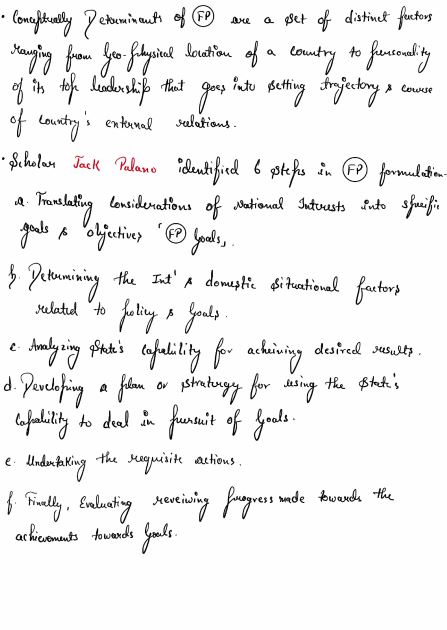 • Conceptually Determinants of FP are a set of distinct factors
ranging from Geo-Physical location of a country to personality
of its top leadership that goes into setting trajectory & course
of country's external relations.
• Scholar Jack Palano identified 6 steps in FP formulation-
a. Translating considerations of National Interests into specific
goals & objectives 'FP Goals,
b. Determining the Int'l & domestic situational factors
related to policy & Goals.
c. Analyzing State's capability for achieving desired results.
d. Developing a plan or strategy for using the State's
Capability to deal in pursuit of Goals.
e. Undertaking the requisite actions.
f. Finally, Evaluating reveiwing progress made towards the
achievements towards Goals.